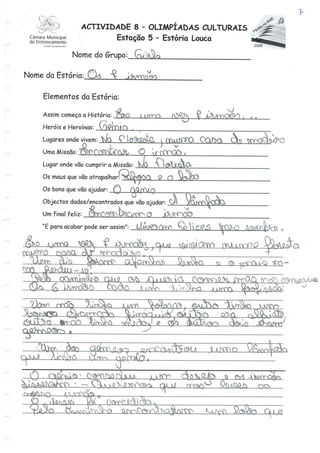 ACTIVIDADE 8 – OLIMPÍADAS CULTURAIS
Câmara Municipal
do Entroncamento
Estação 5 – Estória Louca
2009
Nome do Grupo:
Nome da Estória: Os 7 irmãos
Elementos da Estória:
Assim começa a História: Era uma vez 7 irmãos...
Heróis e Heroínas: Génio
Lugares onde vivem: Na floresta, numa casa de madeira
Uma Missão: Encontrar o irmão.
Lugar onde vão cumprir a Missão: Na floresta
Os maus que vão atrapalhar: Raposa e o lobo
Os bons que vão ajudar: O génio
Objectos dados/encontrados que vão ajudar: A lâmpada
Um final feliz: Encontraram o irmão
"E para acabar pode ser assim": viveram felizes para sempre.
Era uma vez 7 irmãos, que viviam numa floresta
numa casa de madeira.
Um dia foram apanhar lenha e o mais no-
vo perdeu-se.
Pelo caminho que os queria comer mas não consegue
Os 6 irmãos cada um tinha uma
Um não tinha um outro tinha uma
outro era
outro não tinha medo, e os outros dois eram
gémeos.
Um dos gémeos encontrou uma lâmpada
que tinha um génio.
O génio concedeu um desejo e os irmãos
disseram: - Queremos que nos leves ao
nosso irmão.
O desejo foi concedido.
Pelo caminho encontraram um lobo que